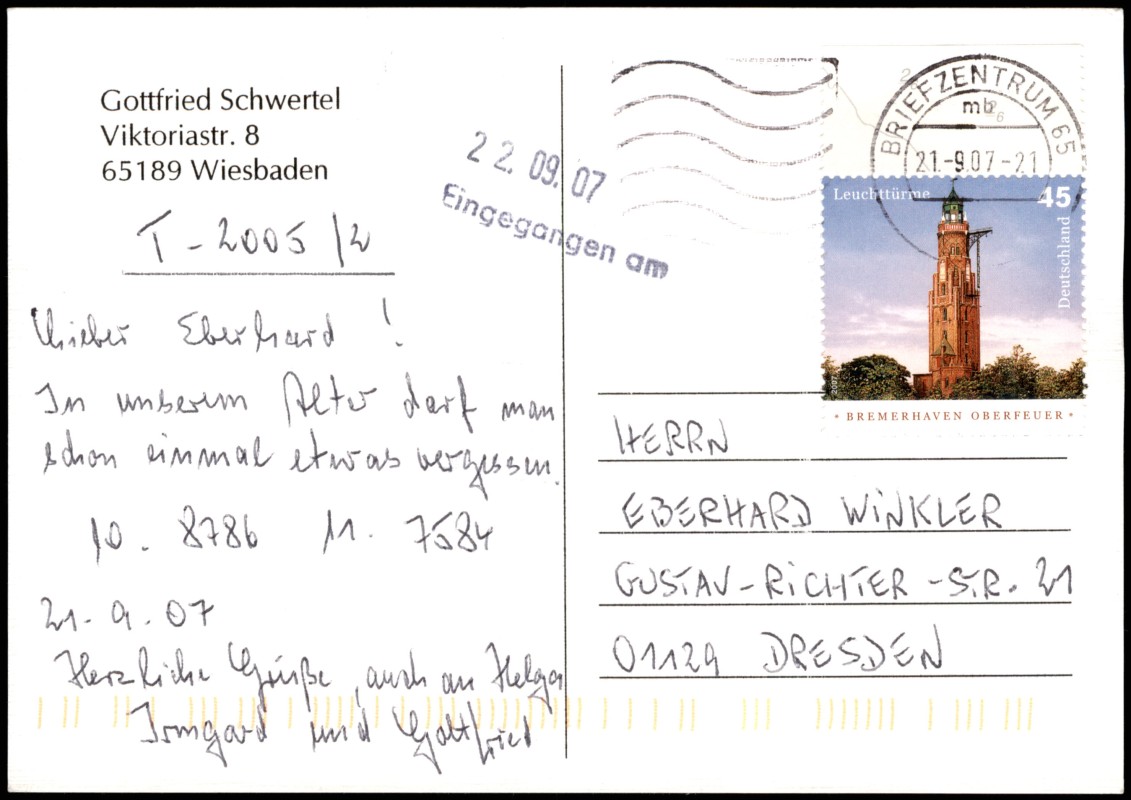 Gottfried Schwertel
Viktoriastr. 8
65189 Wiesbaden
T - 2005/2
Lieber Eberhard !
In unserem Alter darf man
schon einmal etwas vergessen.
10. 8786 11. 7584
21.9.07
Herzliche Grüße, auch an Helga
Irmgard und Gottfried
22.09.07
Eingegangen am
BRIEFZENTRUM 65
mb
21.-9.07-21
Leuchttürme
45
Deutschland
2007
* BREMERHAVEN OBERFEUER *
HERRN
EBERHARD WINKLER
GUSTAV-RICHTER-STR. 21
01129 DRESDEN